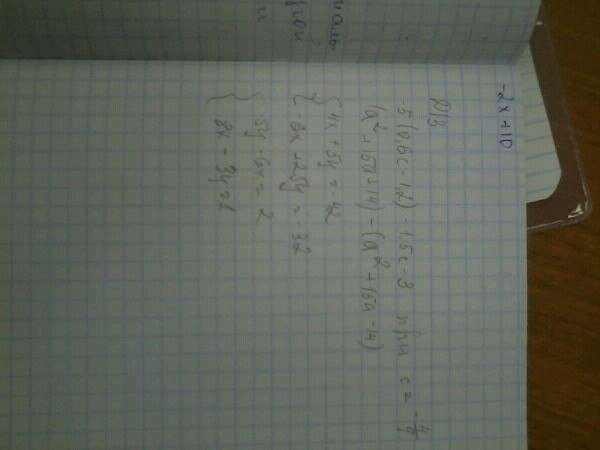 -2x+10
Д/З
-5(0,6c-1,2)-1,5c-3 при c=-4/9
(a²+15a+14)-(a²+15a-14)
{4x+5y=-42
{-8x+25y=-32
{5y-6x=-2
{8x-3y=2